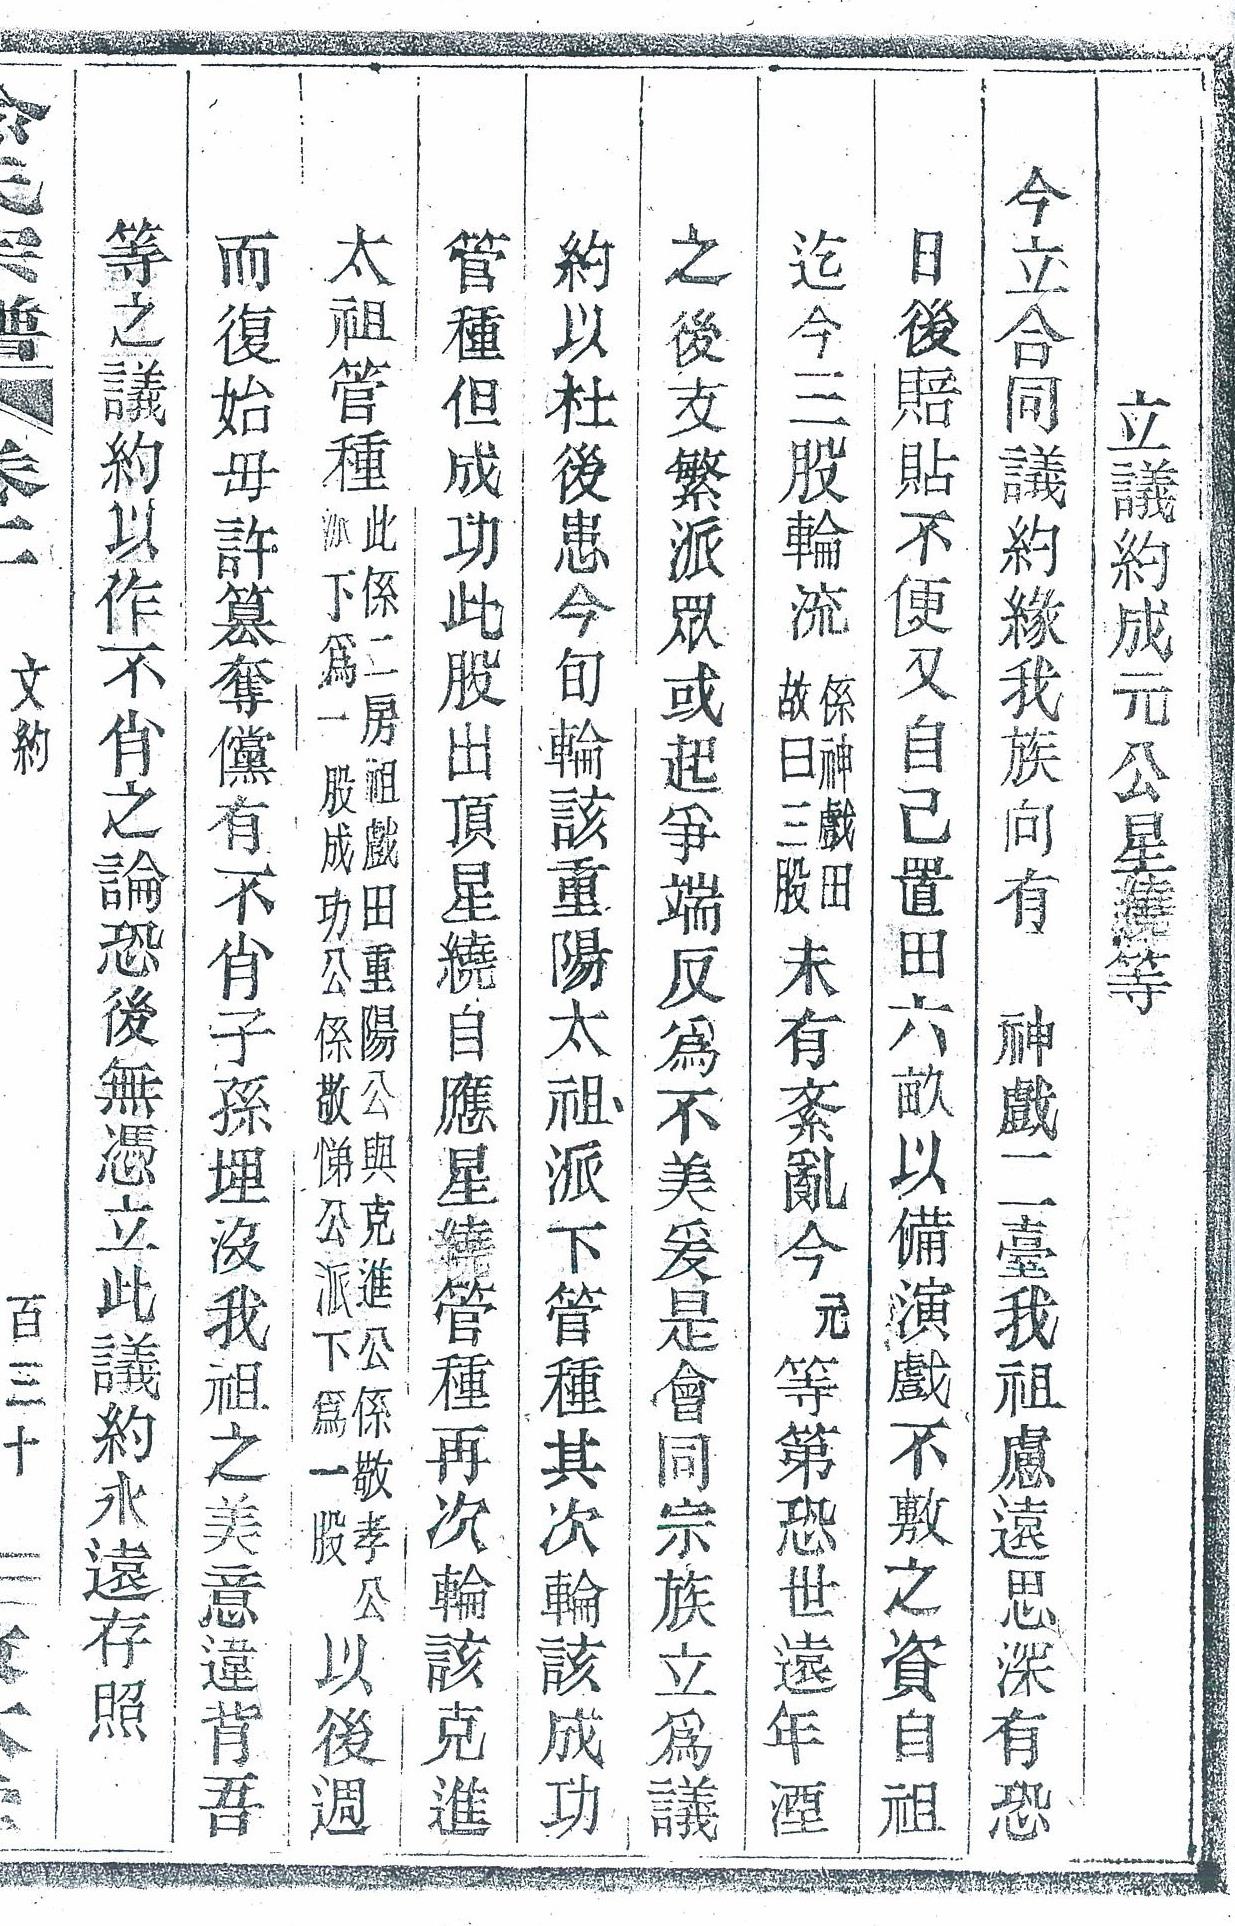 立議約成元公星繞等
今立合同議約緣我族向有　神戲二臺我祖慮遠思深有恐
日後賠貼不便又自己置田六畝以備演戲不敷之資自祖
迄今三股輪流
係神戲田
故曰三股
未有紊亂今元等第恐世遠年湮
之後支繁派眾或起爭端反爲不美爰是會同宗族立爲議
約以杜後患今旬輪該重陽太祖派下管種其次輪該成功
管種但成功此股出頂星繞自應星繞管種再次輪該克進
太祖管種
此係二房祖戲田重陽公與克進公係敬孝公
派下爲一股成功公係敬悌公派下爲一股
以後週
而復始毋許篡奪儻有不肖子孫埋沒我祖之美意違背吾
等之議約以作不肖之論恐後無憑立此議約永遠存照
氏宗譜
卷二
文約
百三十